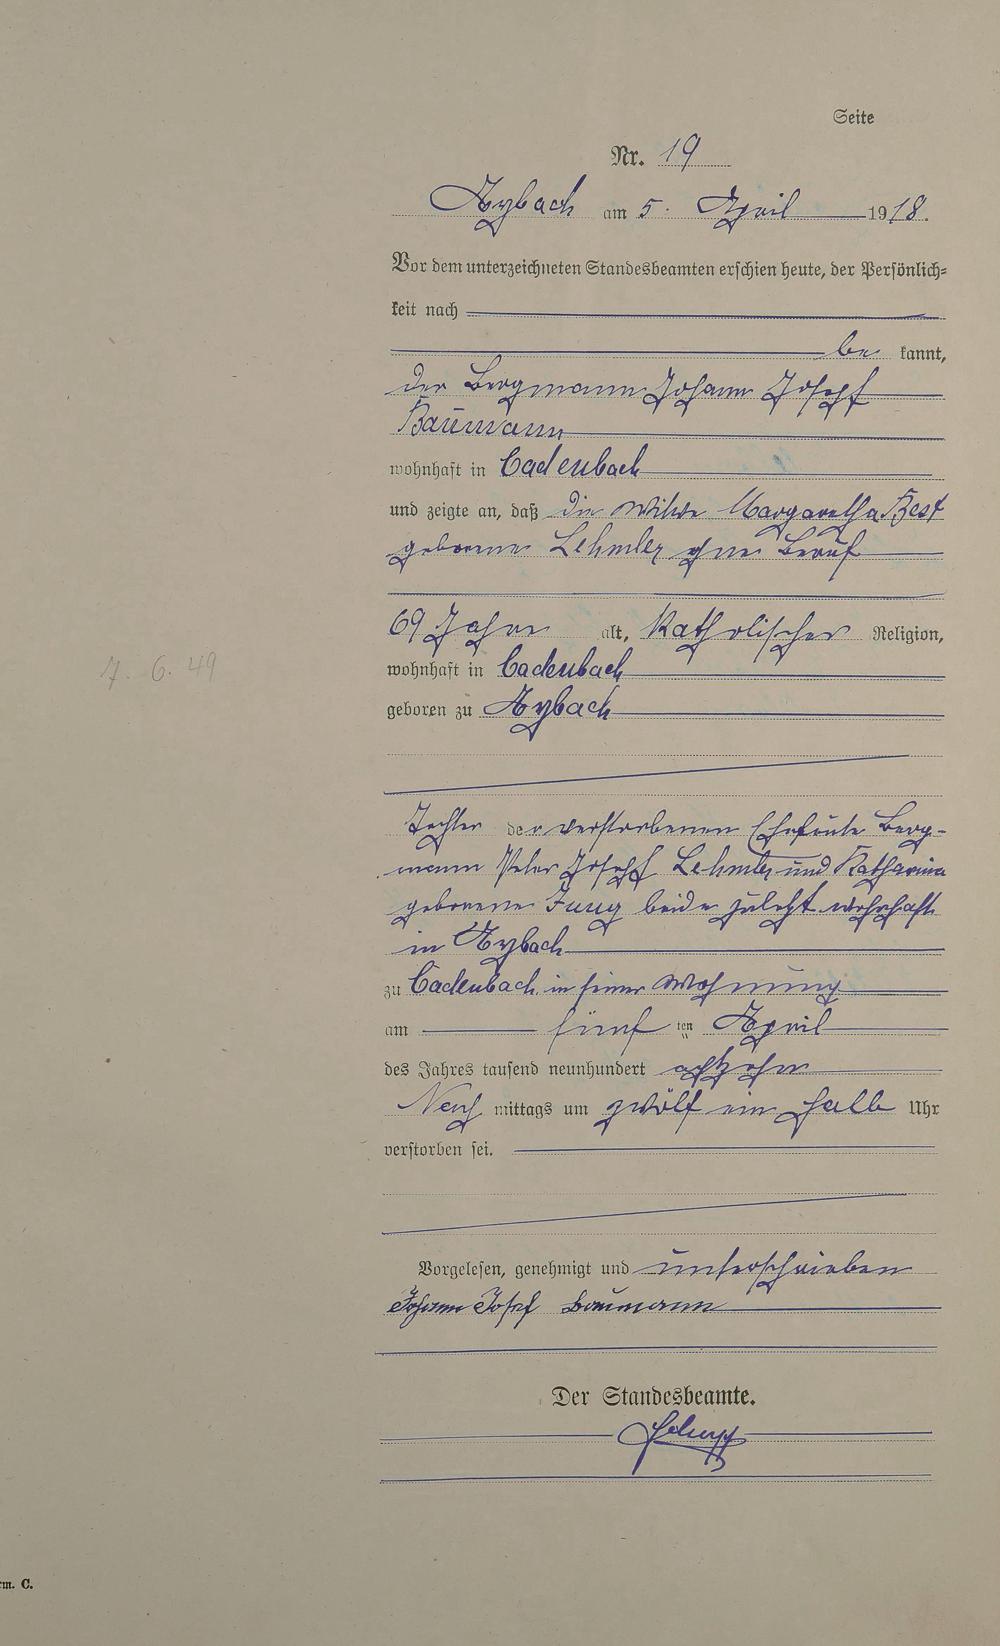 Seite
Nr. 19
Arzbach am 5. April 1918.
Vor dem unterzeichneten Standesbeamten erschien heute, der Persönlich=
keit nach
be kannt,
der Bergmann Johann Joseph
Baumann
wohnhaft in Cadenbach
und zeigte an, daß die Witwe Margaretha Best
geborene Lehmler ohne Beruf
69 Jahre alt, Katholischer Religion,
wohnhaft in Cadenbach
geboren zu Arzbach
7. 6. 49
Tochter der verstorbenen Eheleute Berg-
mann Peter Joseph Lehmler und Katharina
geborene Jung beide zuletzt wohnhaft
in Arzbach
zu Cadenbach in seiner Wohnung
am fünf ten April
des Jahres tausend neunhundert achtzehn
Nach mittags um zwölf ein halb Uhr
verstorben sei.
Vorgelesen, genehmigt und unterschrieben
Johann Josef Baumann
Der Standesbeamte.
rm. C.